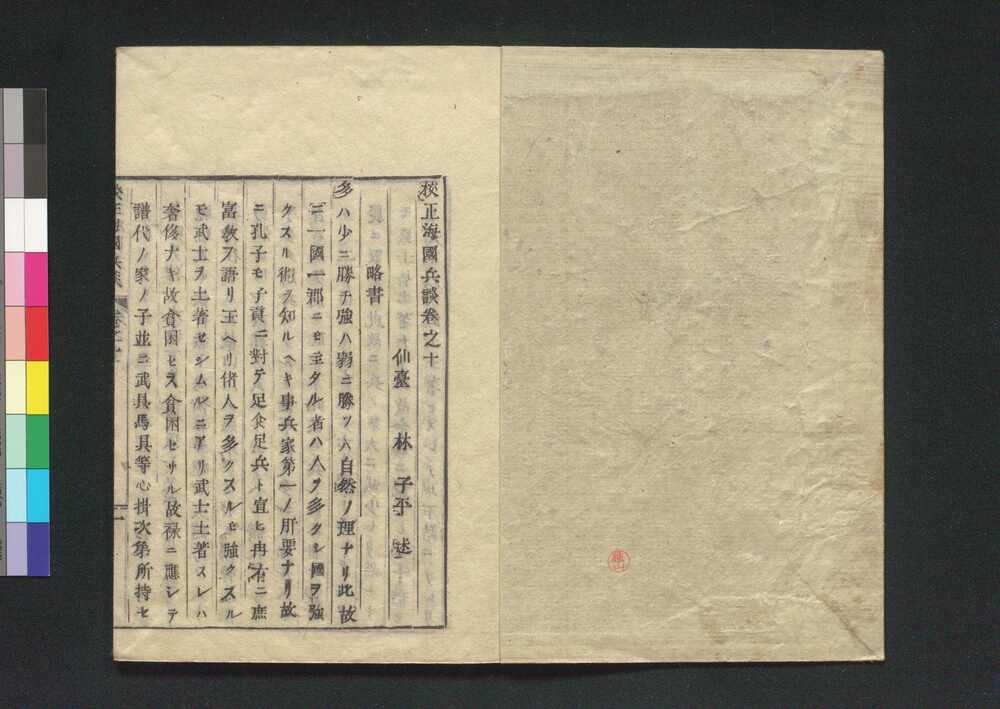 校正海國兵談卷之十
仙臺 林 子平 述
略書
多ハ少ニ勝チ強ハ弱ニ勝ツハ自然ノ理ナリ此故
ニ一國一郡ニモ主タル者ハ人ヲ多クシ國ヲ強
クスル術ヲ知ルヘキ事兵家第一ノ肝要ナリ故
ニ孔子モ子貢ニ對テ足食足兵ト宣ヒ冉有ニ庶
富教ヲ語リ玉ヘリ偖人ヲ多クスルモ強クスル
モ武士ヲ土著セシムルニアリ武士土著スレハ
奢侈ナキ故貧困セス貧困セサル故禄ニ應シテ
譜代ノ家ノ子並ニ武具馬具等心掛次第所持セ